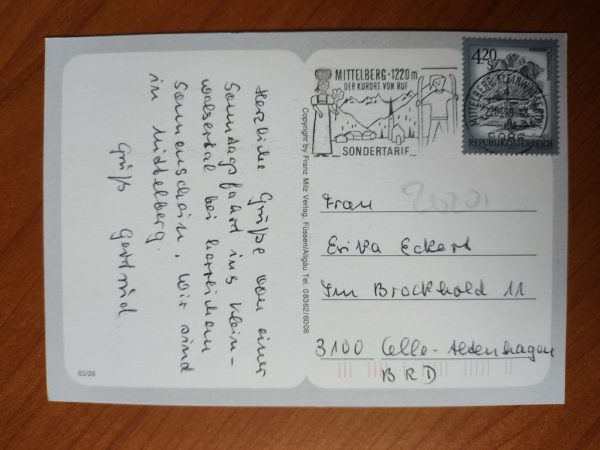 Herzliche Grüße von einer
Sonntagsfahrt ins Klein-
walsertal bei herrlichem
Sonnenschein, wir sind
in Mittelberg.
Gruß Gertrud
83/28
Copyright by Franz Milz Verlag, Füssen/Allgäu Tel. 08362/6008
MITTELBERG · 1220 m
DER KURORT VON RUF
SONDERTARIF
4.20
REPUBLIK ÖSTERREICH
Frau
Erika Eckert
Im Brockhold 11
3100 Celle-Altenhagen
BRD